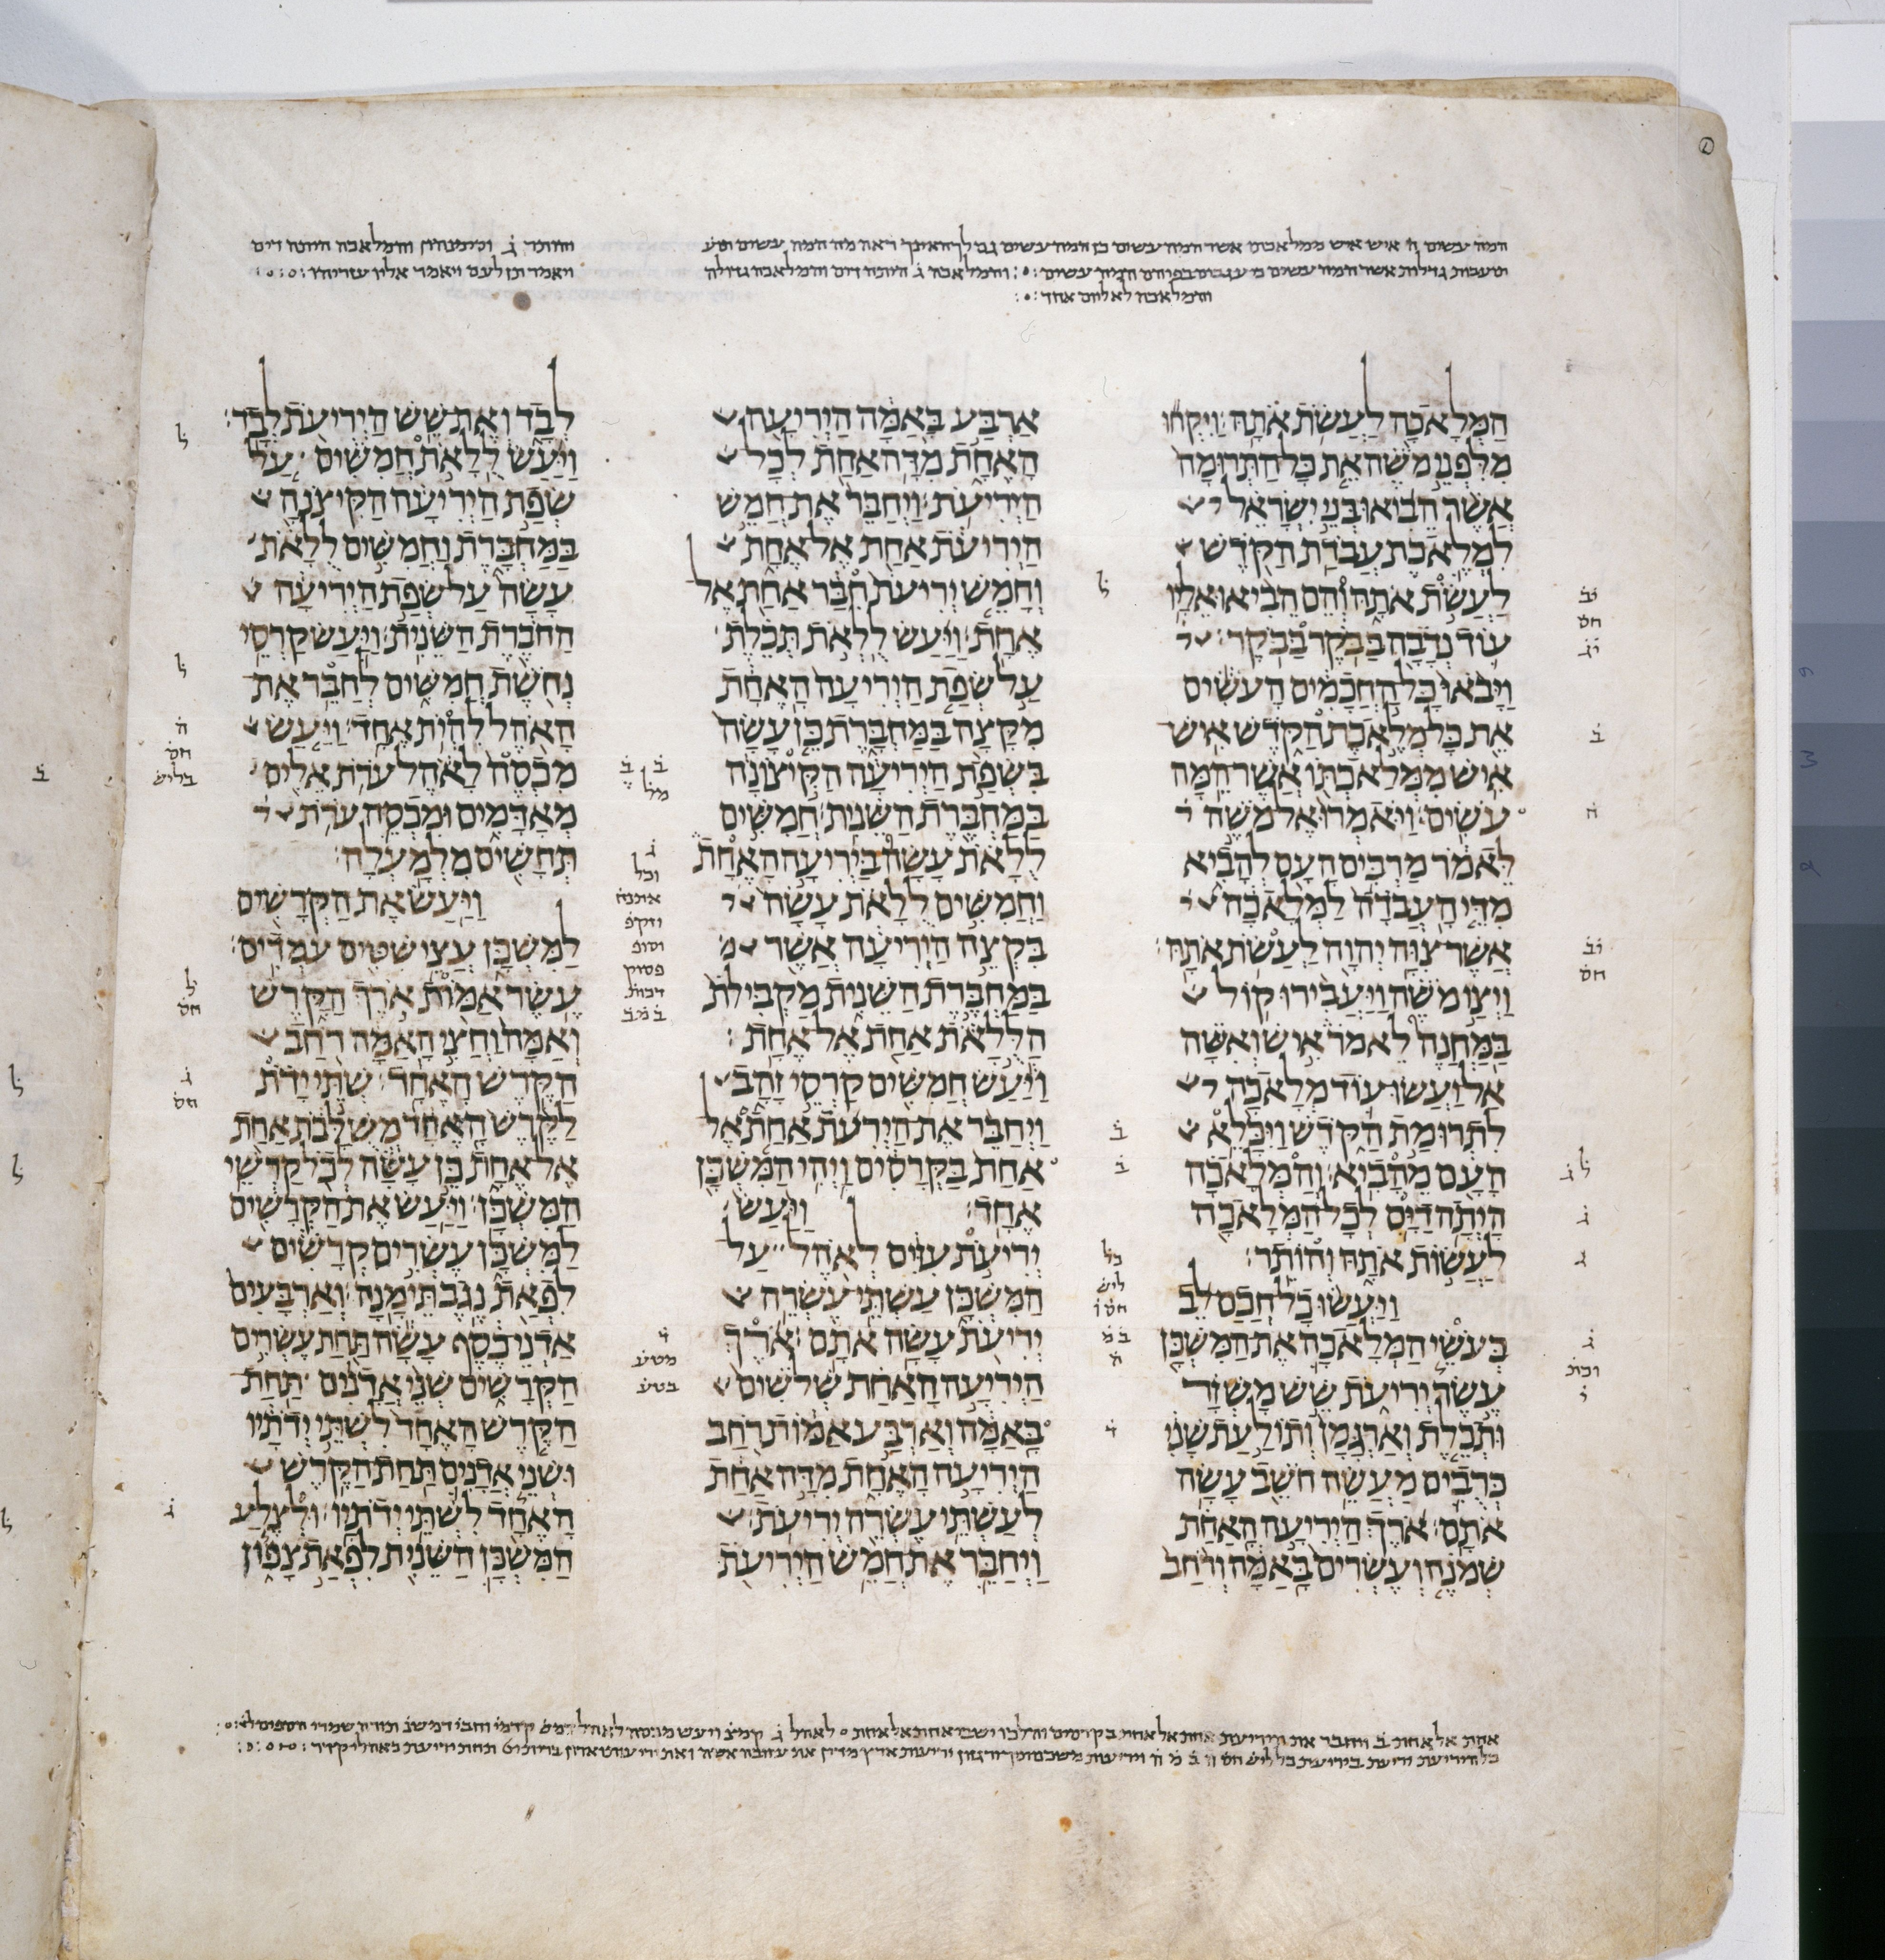 המה עשים ח איש איש ממלאכתו אשר המה עשים כן המה עשים גם לך האינך ראה מה המה עשים
תעבות גדלות אשר המה עשים כי עגבים בפיהם המה עשים והמלאכה ג היתה דים והמלאכה גדולה
והמלאכה לא ליום אחד
והותר ג והמלאכה היתה דים
ויאמר תן לעם ויאמר אליו עזריהו
המלאכה לעשת אתה׃ ויקחו
מלפני משה את כל התרומה
אשר הביאו בני ישראל
למלאכת עבדת הקדש
לעשת אתה והם הביאו אליו
עוד נדבה בבקר בבקר׃
ויבאו כל החכמים העשים
את כל מלאכת הקדש איש
איש ממלאכתו אשר המה
עשים׃ ויאמרו אל משה
לאמר מרבים העם להביא
מדי העבדה למלאכה
אשר צוה יהוה לעשת אתה׃
ויצו משה ויעבירו קול
במחנה לאמר איש ואשה
אל יעשו עוד מלאכה
לתרומת הקדש ויכלא
העם מהביא׃ והמלאכה
היתה דים לכל המלאכה
לעשות אתה והותר׃
ויעשו כל חכם לב
בעשי המלאכה את המשכן
עשר יריעת שש משזר
ותכלת וארגמן ותולעת שני
כרבים מעשה חשב עשה
אתם׃ ארך היריעה האחת
שמנה ועשרים באמה ורחב
ארבע באמה היריעה
האחת מדה אחת לכל
היריעת׃ ויחבר את חמש
היריעת אחת אל אחת
וחמש יריעת חבר אחת אל
אחת׃ ויעש ללאת תכלת
על שפת היריעה האחת
מקצה במחברת כן עשה
בשפת היריעה הקיצונה
במחברת השנית׃ חמשים
ללאת עשה ביריעה האחת
וחמשים ללאת עשה
בקצה היריעה אשר
במחברת השנית מקבילת
הללאת אחת אל אחת׃
ויעש חמשים קרסי זהב
ויחבר את הירעת אחת אל
אחת בקרסים ויהי המשכן
אחד׃ ויעש
יריעת עזים לאהל על
המשכן עשתי עשרה
יריעת עשה אתם׃ ארך
היריעה האחת שלשים
באמה וארבע אמות רחב
היריעה האחת מדה אחת
לעשתי עשרה יריעת׃
ויחבר את חמש היריעת
לבד ואת שש היריעת לבד׃
ויעש ללאת חמשים על
שפת היריעה הקיצנה
במחברת וחמשים ללאת
עשה על שפת היריעה
החברת השנית׃ ויעש קרסי
נחשת חמשים לחבר את
האהל להית אחד׃ ויעש
מכסה לאהל ערת אלים
מאדמים ומכסה ערת
תחשים מלמעלה׃
ויעש את הקרשים
למשכן עצי שטים עמדים׃
עשר אמות ארך הקרש
ואמה וחצי האמה רחב
הקרש האחד׃ שתי ידת
לקרש האחד משלבת אחת
אל אחת כן עשה לכל קרשי
המשכן׃ ויעש את הקרשים
למשכן עשרים קרשים
לפאת נגב תימנה׃ וארבעים
אדני כסף עשה תחת עשרים
הקרשים שני אדנים תחת
הקרש האחד לשתי ידתיו
ושני אדנים תחת הקרש
האחד לשתי ידתיו׃ ולצלע
המשכן השנית לפאת צפון
אחת אל אחת ב ויחבר את היריעת אחת אל אחת בקרסים